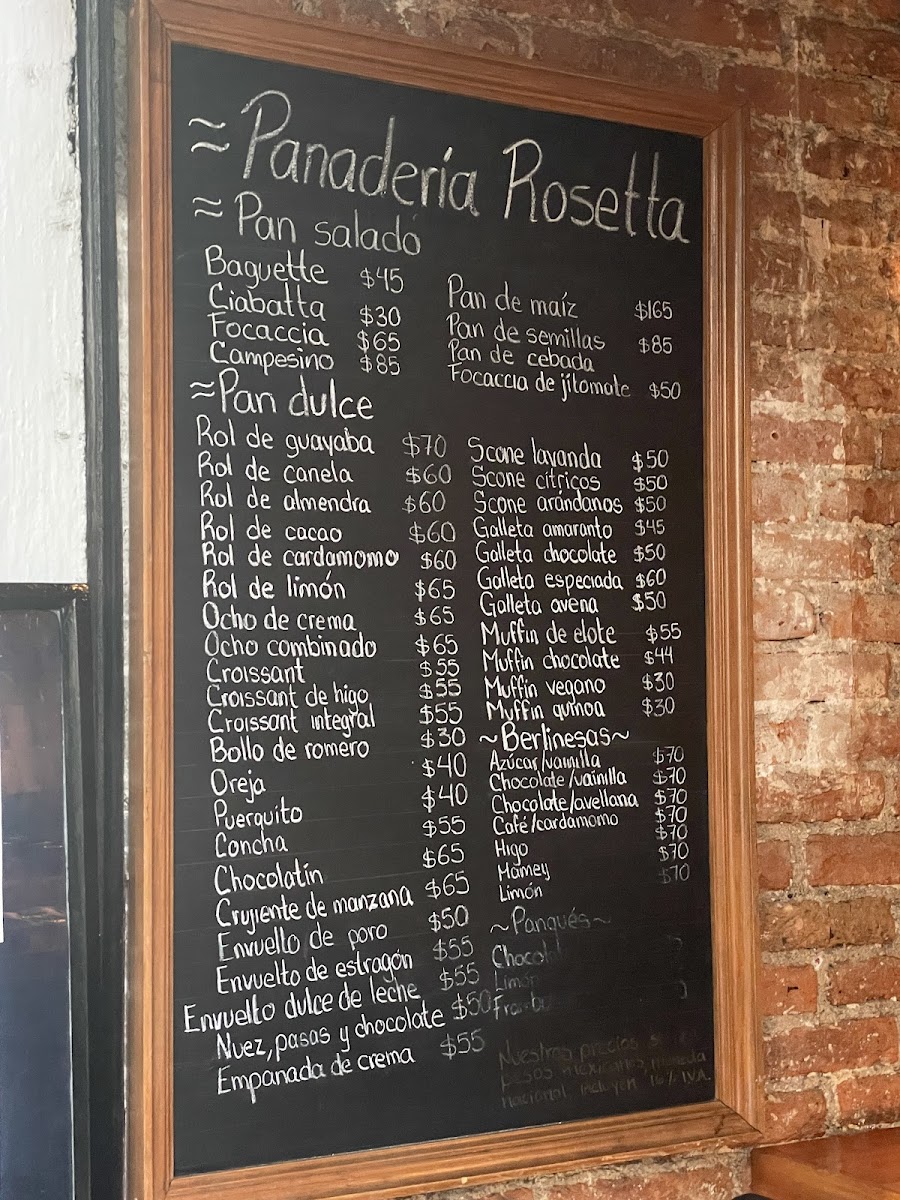 ≈Panadería Rosetta
≈Pan salado
Baguette $45
Ciabatta $30
Focaccia $65
Campesino $85
Pan de maíz $165
Pan de semillas $85
Pan de cebada
Focaccia de jitomate $50
≈Pan dulce
Rol de guayaba $70
Rol de canela $60
Rol de almendra $60
Rol de cacao $60
Rol de cardamomo $60
Rol de limón $65
Ocho de crema $65
Ocho combinado $65
Croissant $55
Croissant de higo $55
Croissant integral $55
Bollo de romero $30
Oreja $40
Puerquito $40
Concha $55
Chocolatín $65
Crujiente de manzana $65
Envuelto de poro $50
Envuelto de estragón $55
Envuelto dulce de leche $55
Nuez, pasas y chocolate $50
Empanada de crema $55
Scone lavanda $50
Scone cítricos $50
Scone arándanos $50
Galleta amaranto $45
Galleta chocolate $50
Galleta especiada $60
Galleta avena $50
Muffin de elote $55
Muffin chocolate $44
Muffin vegano $30
Muffin quinoa $30
~Berlinesas~
Azúcar/vainilla $70
Chocolate/vainilla $70
Chocolate/avellana $70
Café/cardamomo $70
Higo $70
Mamey $70
Limón $70
~Panqués~
Chocol
Limón
Nuestros precios
pesos mexicanos, moneda
nacional, incluyen 16% IVA.